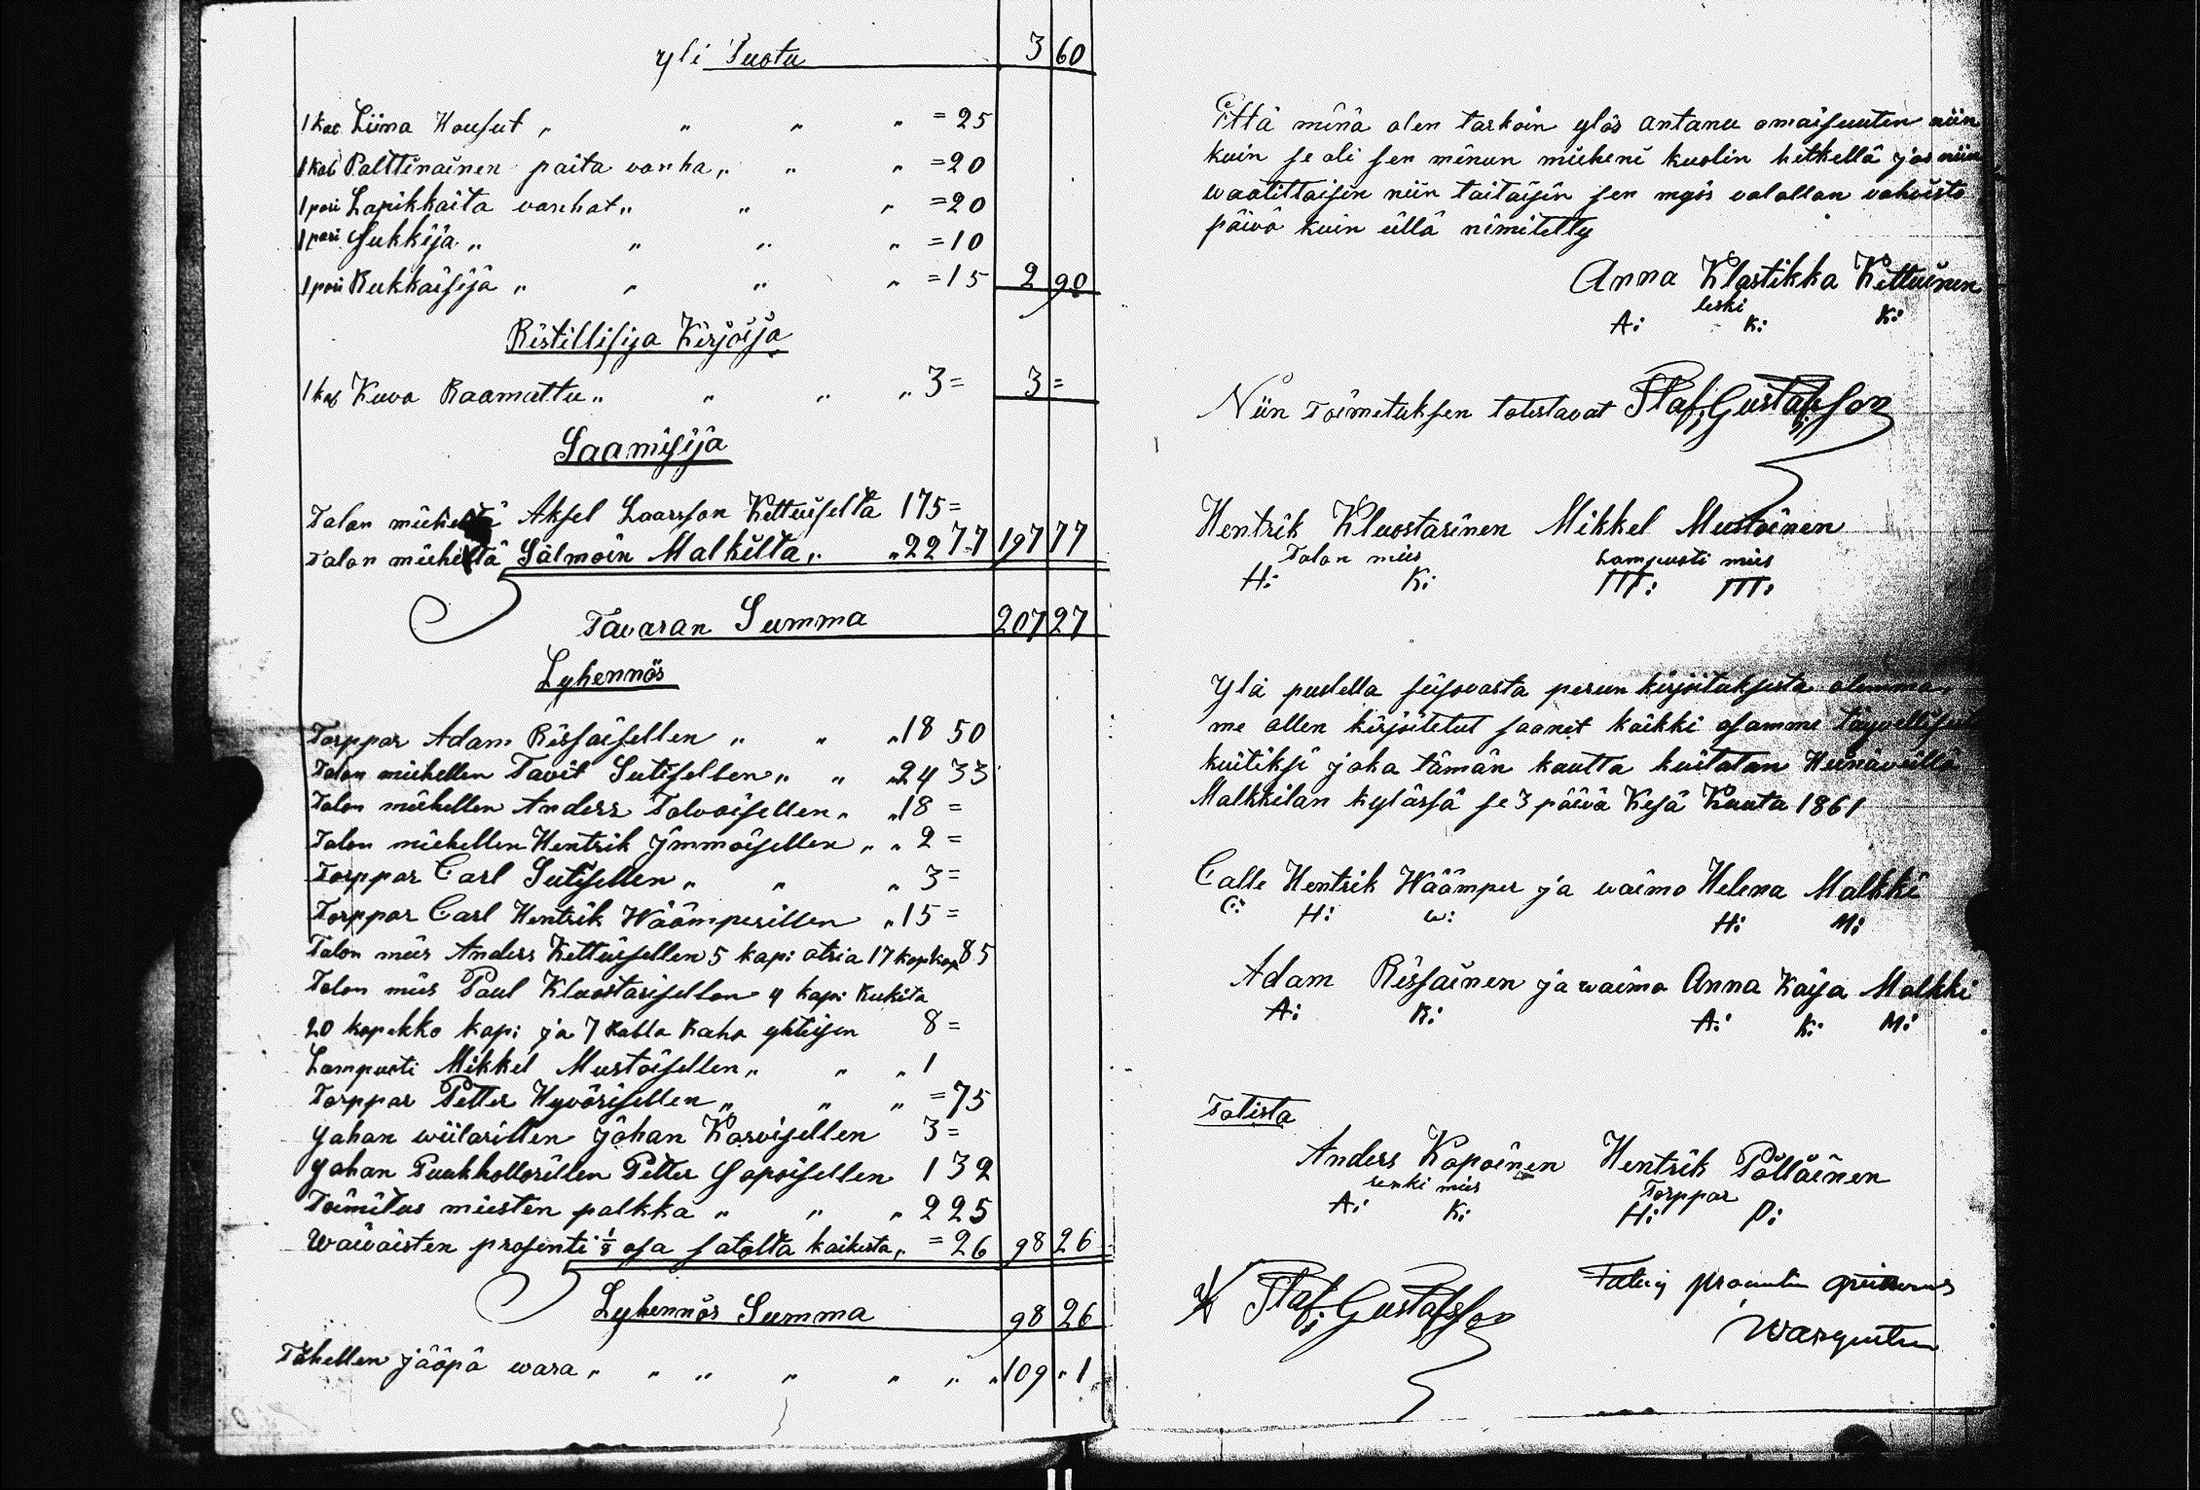 yli Tuotu 3 60
1 kal Liina Housut „ „ „ „ = 25
1 kal Palttinainen paita vanha „ „ „ = 20
1 pari Lapikkaita vanhat „ „ „ = 20
1 pari Sukkija „ „ „ „ = 10
1 pari Rukkaisija „ „ „ „ = 15 2 90
Ristillisija Kirjoija
1 kal Kuva Raamattu „ „ „ „ 3 = 3 =
Saamisija
Talon mieheltä Aksel Laarsson Kettuiselta 175 =
Talon mieheltä Salmoin Malkilta „ „ 22 77 197 77
Tavaran Summa 207 27
Lyhennös
Torppar Adam Rissaisellen „ „ „ 18 50
Talon miehellen Tavit Sutisellen „ „ „ 24 33
Talon miehellen Anders Talvaisellen „ „ 18 =
Talon miehellen Hentrik Immoisellen „ „ 2 =
Torppar Carl Sutisellen „ „ „ 3 =
Torppar Carl Hentrik Wäämperillen „ 15 =
Talon mies Anders Kettuisellen 5 kapi otria 17 kop kap 85
Talon mies Paul Kluostarisellen 4 kapi Rukita
20 kopekko kapi ja 7 Rubla Raha yhteisen 8 =
Lampuoti Mikkel Mustoisellen „ „ „ 1
Torppar Petter Hyvärisellen „ „ „ = 75
Jahan wiilarillen Johan Karvisellen 3 =
Jahan Puukhollorillen Petter Sapaisellen 1 32
Toimitus miesten palkka „ „ „ 2 25
Waivaisten prosenti 1/8 osa satalta kaikista „ = 26 98 26
Lyhennös Summa 98 26
Tähellen jääpä wara „ „ „ „ „ „ „ 109 „ 1
Että minä olen tarkoin ylös antanu omaisuuten niin
kuin se oli sen minun mieheni kuolin hetkellä jos niin
waatittaisin niin taitaisin sen myös valallan vahvista
päivä kuin üllä nimitetty
Anna Klastikka Kettuinen
leski
A: K: K:
Niin Toimituksen totistavat Staf: Gustafsson
Hentrik Kluostarinen Mikkel Mustoinen
Talon mies Lampuoti mies
H: K: M: M:
Ylä puolella seisovasta perun kirjoituksesta olemma
me allen kirjoitetut saanet kaikki osamme
kuitiksi joka tämän kautta kuitatan Heinäveillä
Malkkilan kylässä se 3 päivä Kesä Kuuta 1861
Calle Hentrik Wäämper ja waimo Helena Malkki
C: H: W: H: M:
Adam Rissainen ja waimo Anna Kaija Malkki
A: R: A: K: M:
Totista
Anders Kopoinen Hentrik Pöllöinen
renki mies Torppar
A: K: H: P:
Staf: Gustafsson